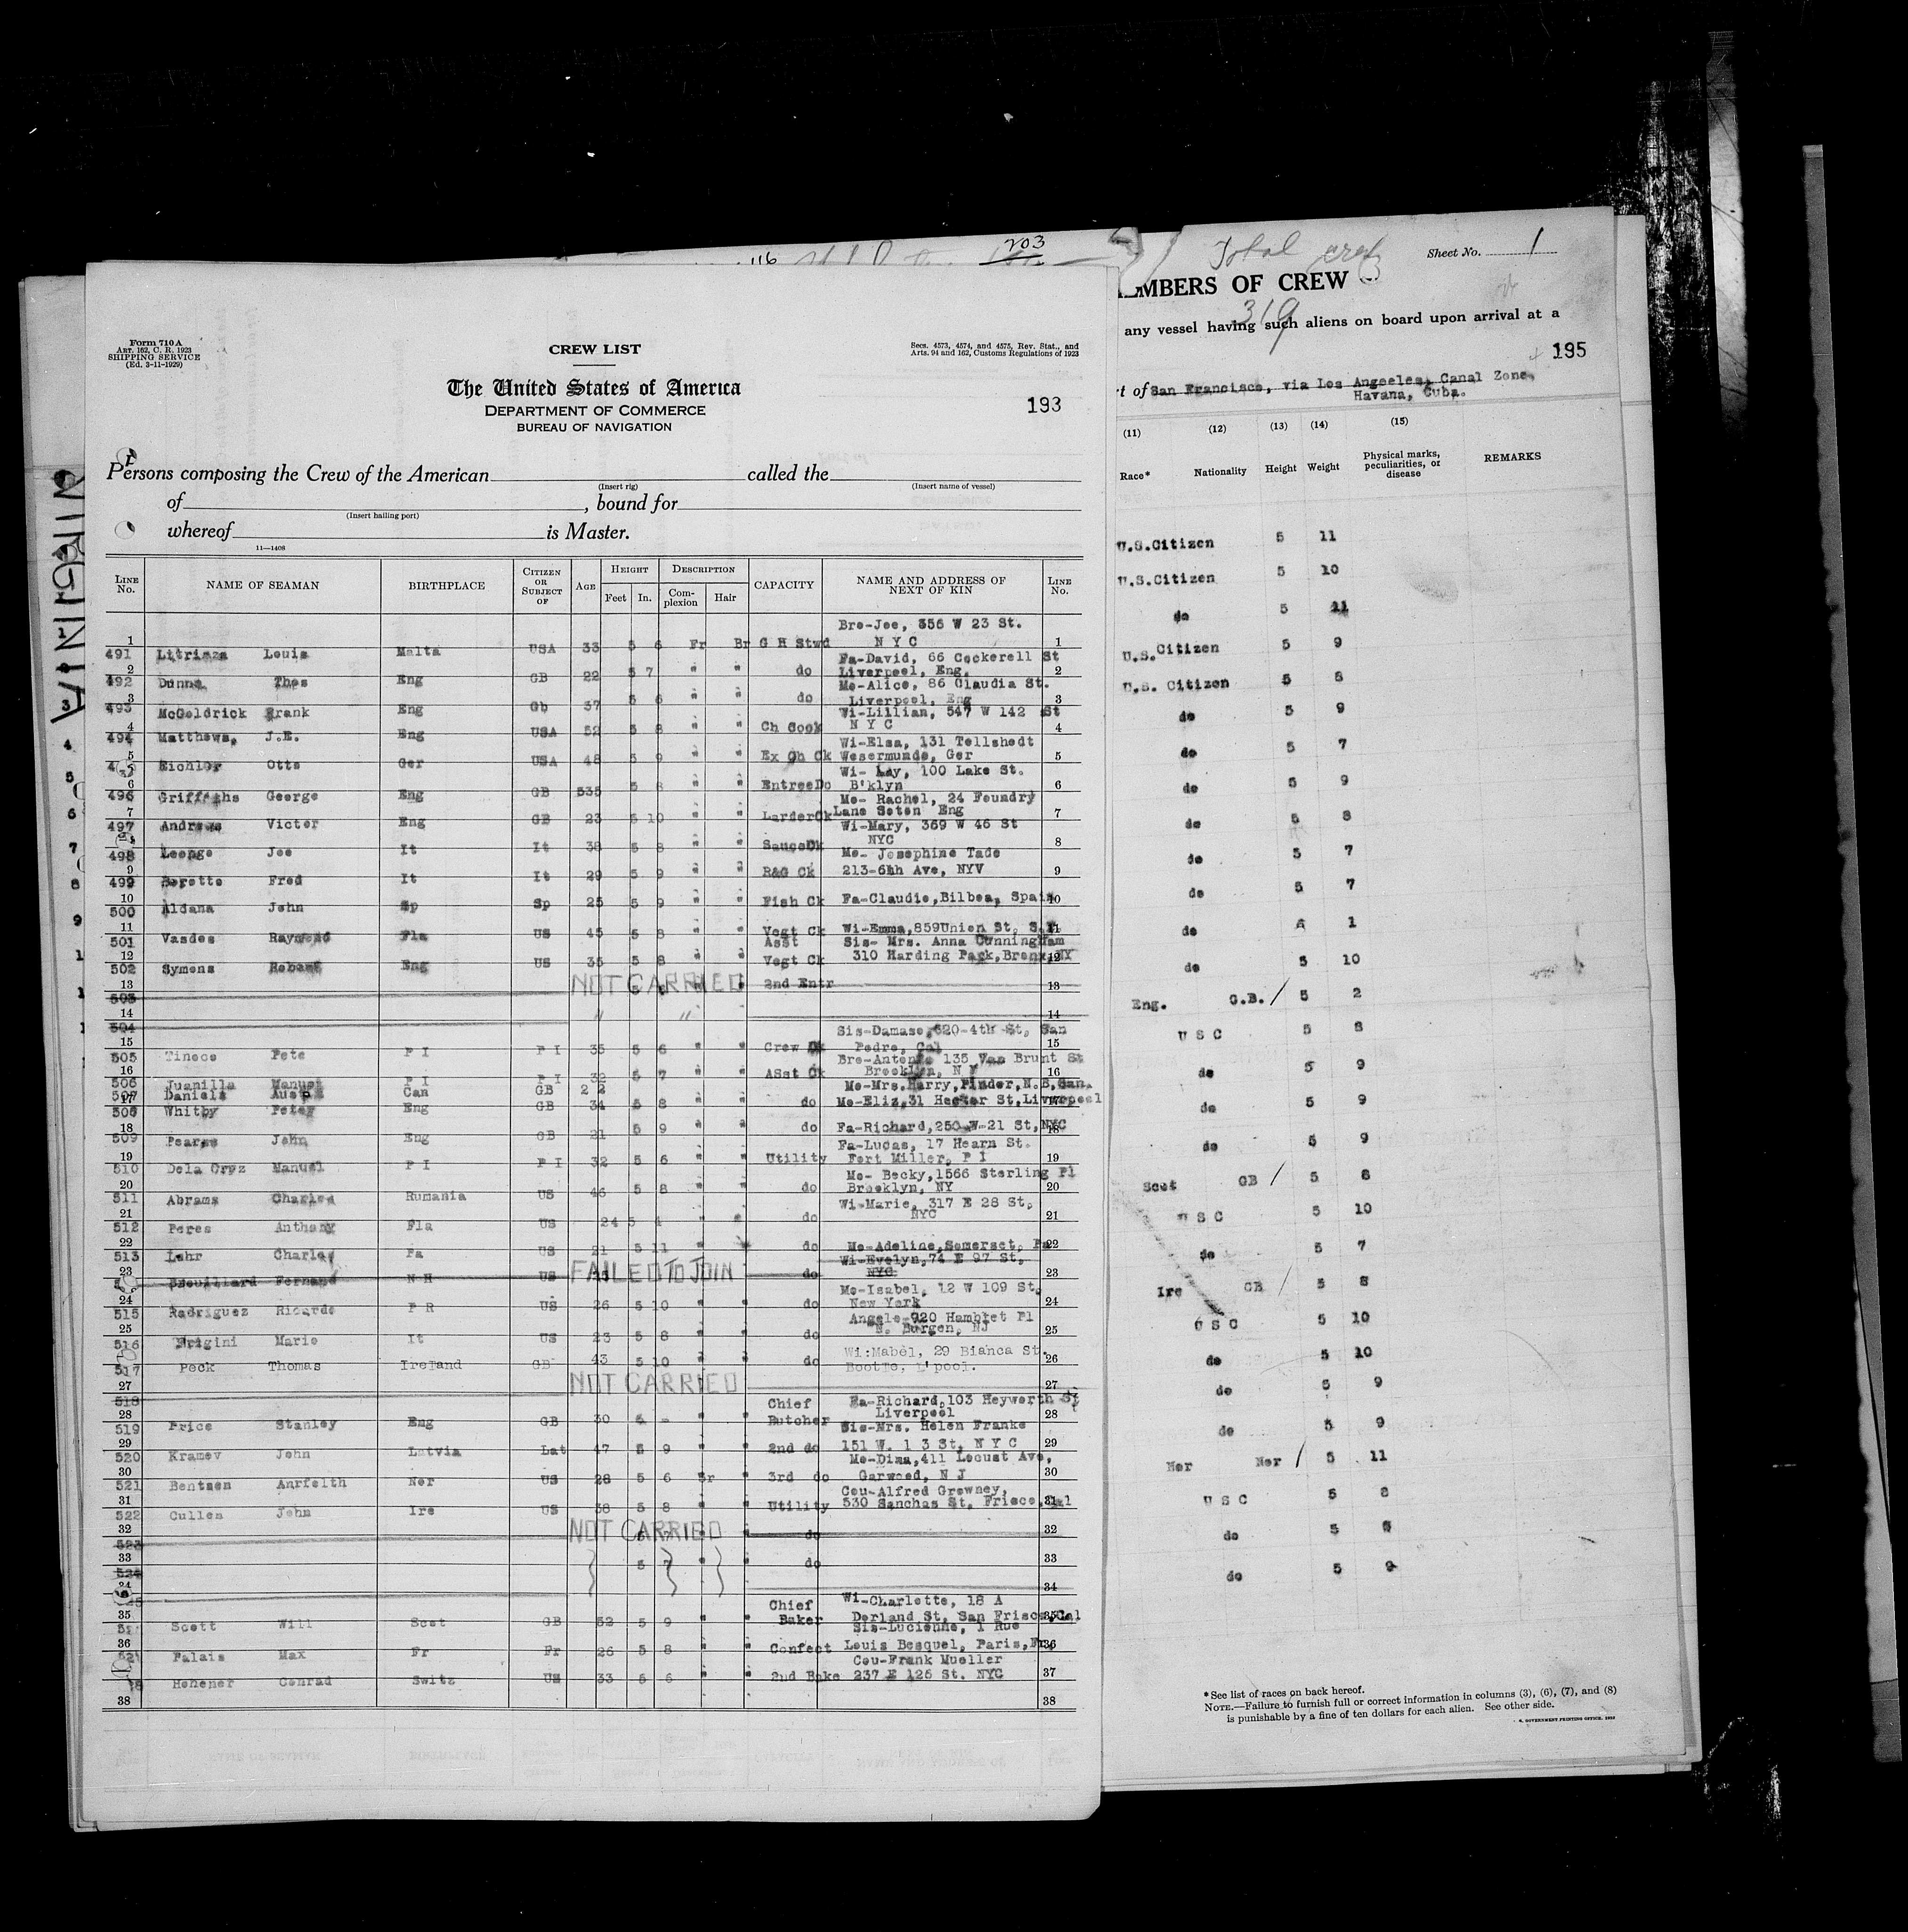 203
116
Form 710 A
ART. 162, C. R. 1923
SHIPPING SERVICE
(Ed. 3-11-1929)
CREW LIST
Secs. 4573, 4574, and 4575, Rev. Stat., and
Arts. 94 and 162, Customs Regulations of 1923
The United States of America
DEPARTMENT OF COMMERCE
BUREAU OF NAVIGATION
193
Persons composing the Crew of the American called the
(Insert rig) (Insert name of vessel)
of , bound for
(Insert hailing port)
whereof is Master.
11—1408
LINE No. NAME OF SEAMAN BIRTHPLACE CITIZEN OR SUBJECT OF AGE HEIGHT Feet In. DESCRIPTION Complexion Hair CAPACITY NAME AND ADDRESS OF NEXT OF KIN LINE No.
Bro-Joe, 356 W 23 St.
1 491 Louis Malta USA 33 5 6 Fr Br G H Stwd N Y C 1
Fa-David, 66 Cockerell St
2 492 Dunne, Thos Eng GB 22 5 7 " " do Liverpool, Eng. 2
Mo-Alice, 86 Claudia St.
3 493 McGoldrick Frank Eng Gb 37 5 6 " " do Liverpool, Eng 3
Wi-Lillian, 547 W 142 St
4 494 Matthews, J.E. Eng USA 52 5 8 " " Ch Cook N Y C 4
Wi-Elsa, 131 Tellshedt
5 Eichler Otto Ger USA 48 5 9 " " Ex Ch Ck Wesermunde, Ger 5
Wi- Lay, 100 Lake St.
6 496 Griffiths George Eng GB 535 5 8 " " EntreeDo B'klyn 6
Mo- Rachel, 24 Foundry
7 497 Andrews Victor Eng GB 23 5 10 " " LarderCk Lane Soton Eng 7
Wi-Mary, 369 W 46 St
8 498 Joe It It 38 5 8 " " SauceCk NYC 8
Mo- Josephine Tado
9 499 Fred It It 29 5 9 " " R&G Ck 213-6th Ave, NYV 9
10 500 Aldana John Sp Sp 25 5 9 " " Fish Ck Fa-Claudio,Bilboa, Spain 10
11 501 Vasdes Raymond Fla US 45 5 8 " " Vegt Ck Wi-Emma,859Union St, 11
Asst Sis- Mrs. Anna Cunningham
12 502 Symons Robert Eng US 35 5 8 " " Vegt Ck 310 Harding Park,Bronx,NY 12
13 503 NOT CARRIED 2nd Entr 13
14 504 " " 14
Sis-Damaso,620-4th St, San
15 505 Tineco Pete P I P I 35 5 6 " " Crew Ck Pedro, Cal 15
Bro-Antonio 135 Van Brunt St
16 506 Juanilla Manuel P I P I 32 5 7 " " ASst Ck Brooklen, N Y 16
507 Daniels Can GB 2 2 Mo-Mrs.Harry,Pinder,N.B,Can.
17 508 Whitby Peter Eng GB 34 5 8 " " do Mo-Eliz,31 Hector St,Liverpool 17
18 509 Pearse John Eng GB 21 5 9 " " do Fa-Richard,250 W-21 St,NYC 18
Fa-Lucas, 17 Hearn St.
19 510 Dela Cruz Manuel P I P I 32 5 6 " " Utility Fort Miller, P I 19
Mo- Becky,1566 Sterling Pl
20 511 Abrams Charles Rumania US 46 5 8 " " do Brooklyn, NY 20
Wi-Marie, 317 E 28 St,
21 512 Peres Anthony Fla US 24 5 4 " " do NYC 21
22 513 Lehr Charles Pa US 21 5 11 " " do Mo-Adeline,Somerset, Pa 22
Wi-Evelyn,74 E 97 St,
23 Brouillard Fernand N H US FAILED TO JOIN do NYC 23
Mo-Isabel, 12 W 109 St,
24 515 Radriguez Ricardo P R US 26 5 10 " " do New York 24
Angelo-920 Hambret Pl
25 516 Marie It US 23 5 8 " " do N. Bergen, NJ 25
Wi:Mabel, 29 Bianca St.
26 517 Peck Thomas Ireland GB 43 5 10 " " do Bootle, L'pool. 26
27 518 NOT CARRIED 27
Chief Fa-Richard,103 Heyworth St
28 519 Price Stanley Eng GB 30 6 - " " Butcher Liverpool 28
Sis-Mrs. Helen Franke
29 520 Kramev John Latvia Lat 47 5 9 " " 2nd do 151 W. 1 3 St, N Y C 29
Mo-Dina,411 Locust Ave,
30 521 Bentsen Anrfelth Nor US 28 5 6 " 3rd do Garwood, N J 30
Cou-Alfred Growney,
31 522 Cullen John Ire US 38 5 8 " " Utility 530 Sanchas St, Frisco,Cal 31
32 523 NOT CARRIED " do 32
33 524 5 7 " " do 33
34 34
Chief Wi-Charlotte, 18 A
35 Scott Will Scot GB 52 5 9 " " Baker Dorland St, San Frisco,Cal 35
Sis-Lucienne, 1 Rue
36 Palais Max Fr Fr 26 5 8 " " Confect Louis Besquel, Paris,Fr 36
Cou-Frank Mueller
37 Hohener Conrad Switz US 33 5 6 " " 2nd Bake 237 E 126 St. NYC 37
38 38
VIRGINIA
3
4
5
6
7
8
9
Total crew
319
Sheet No. 1
MEMBERS OF CREW
any vessel having such aliens on board upon arrival at a
195
rt of San Francisco, via Los Angeles, Canal Zone,
Havana, Cuba.
(11) (12) (13) (14) (15)
Race* Nationality Height Weight Physical marks, peculiarities, or disease REMARKS
U.S.Citizen 5 11
U.S.Citizen 5 10
do 5 11
U.S.Citizen 5 9
U.S. Citizen 5 8
do 5 9
do 5 7
do 5 9
do 5 8
do 5 7
do 5 7
do 6 1
do 5 10
Eng. G.B. / 5 2
U S C 5 8
do 5 9
do 5 9
do 5 9
Scot GB / 5 8
U S C 5 10
do 5 7
Ire GB / 5 8
U S C 5 10
do 5 10
do 5 9
do 5 9
Nor Nor / 5 11
U S C 5 8
do 5
do 5 9
*See list of races on back hereof.
NOTE.—Failure to furnish full or correct information in columns (3), (6), (7), and (8)
is punishable by a fine of ten dollars for each alien. See other side.
GOVERNMENT PRINTING OFFICE